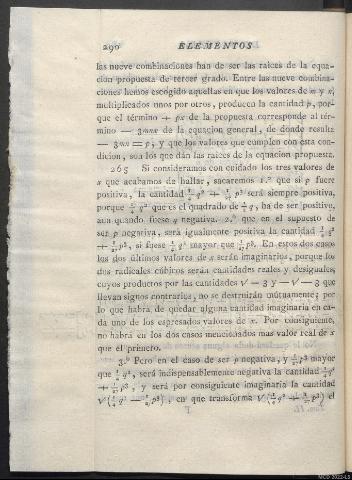 290 ELEMENTOS
las nueve combinaciones han de ser las raices de la equa-
cion propuesta de tercer grado. Entre las nueve combina-
ciones hemos escogido aquellas en que los valores de m y n,
multiplicados unos por otros, producen la cantidad p, por-
que el término + px de la propuesta corresponde al tér-
mino — 3mnx de la equacion general, de donde resulta
— 3mn = p, y que los valores que cumplen con esta con-
dicion, son los que dán las raices de la equacion propuesta.
265 Si consideramos con cuidado los tres valores de
x que acabamos de hallar, sacaremos 1.º que si p fuere
positiva, la cantidad ¼ q² + 1/27 p³ será siempre positiva,
porque ¼ q² que es el quadrado de ½ q, ha de ser positiva,
aun quando fuese q negativa. 2.º que en el supuesto de
ser p negativa, será igualmente positiva la cantidad ¼ q²
+ 1/27 p³, si fuese ¼ q² mayor que 1/27 p³. En estos dos casos
los dos últimos valores de x serán imaginarios, porque los
dos radicales cúbicos serán cantidades reales y desiguales,
cuyos productos por las cantidades √ — 3 y — √ — 3 que
llevan signos contrarios, no se destruirán mútuamente; por
lo que habrá de quedar alguna cantidad imaginaria en ca-
da uno de los espresados valores de x. Por consiguiente,
no habrá en los dos casos mencionados mas valor real de x
que el primero.
3.º Pero en el caso de ser p negativa, y 1/27 p³ mayor
que ¼ q², será indispensablemente negativa la cantidad ¼ q²
+ 1/27 p³, y será por consiguiente imaginaria la cantidad
√(¼ q² — 1/27 p³), en que transforma √(¼ q² + 1/27 p³) el
T
MCD 2022-L5